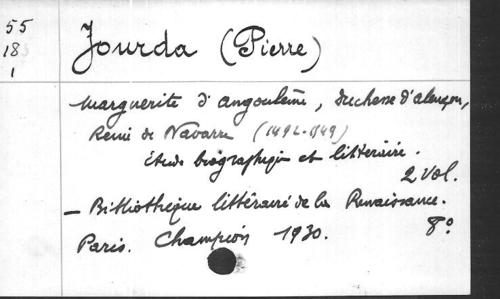 55
18
1
Jourda (Pierre)
Marguerite d'Angoulême, duchesse d'Alençon,
Reine de Navarre (1492-1549)
Etude biographique et littéraire.
2 vol.
— Bibliothèque littéraire de la Renaissance.
Paris. Champion 1930. 8°